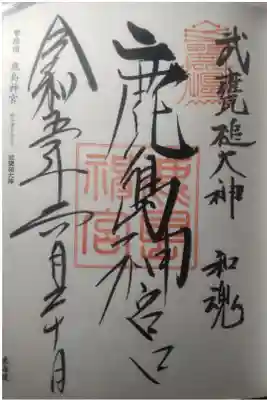 武甕槌大神 和魂
鹿島神宮
鹿島神宮
令和五年六月三十日
鹿島神宮
武甕槌大神